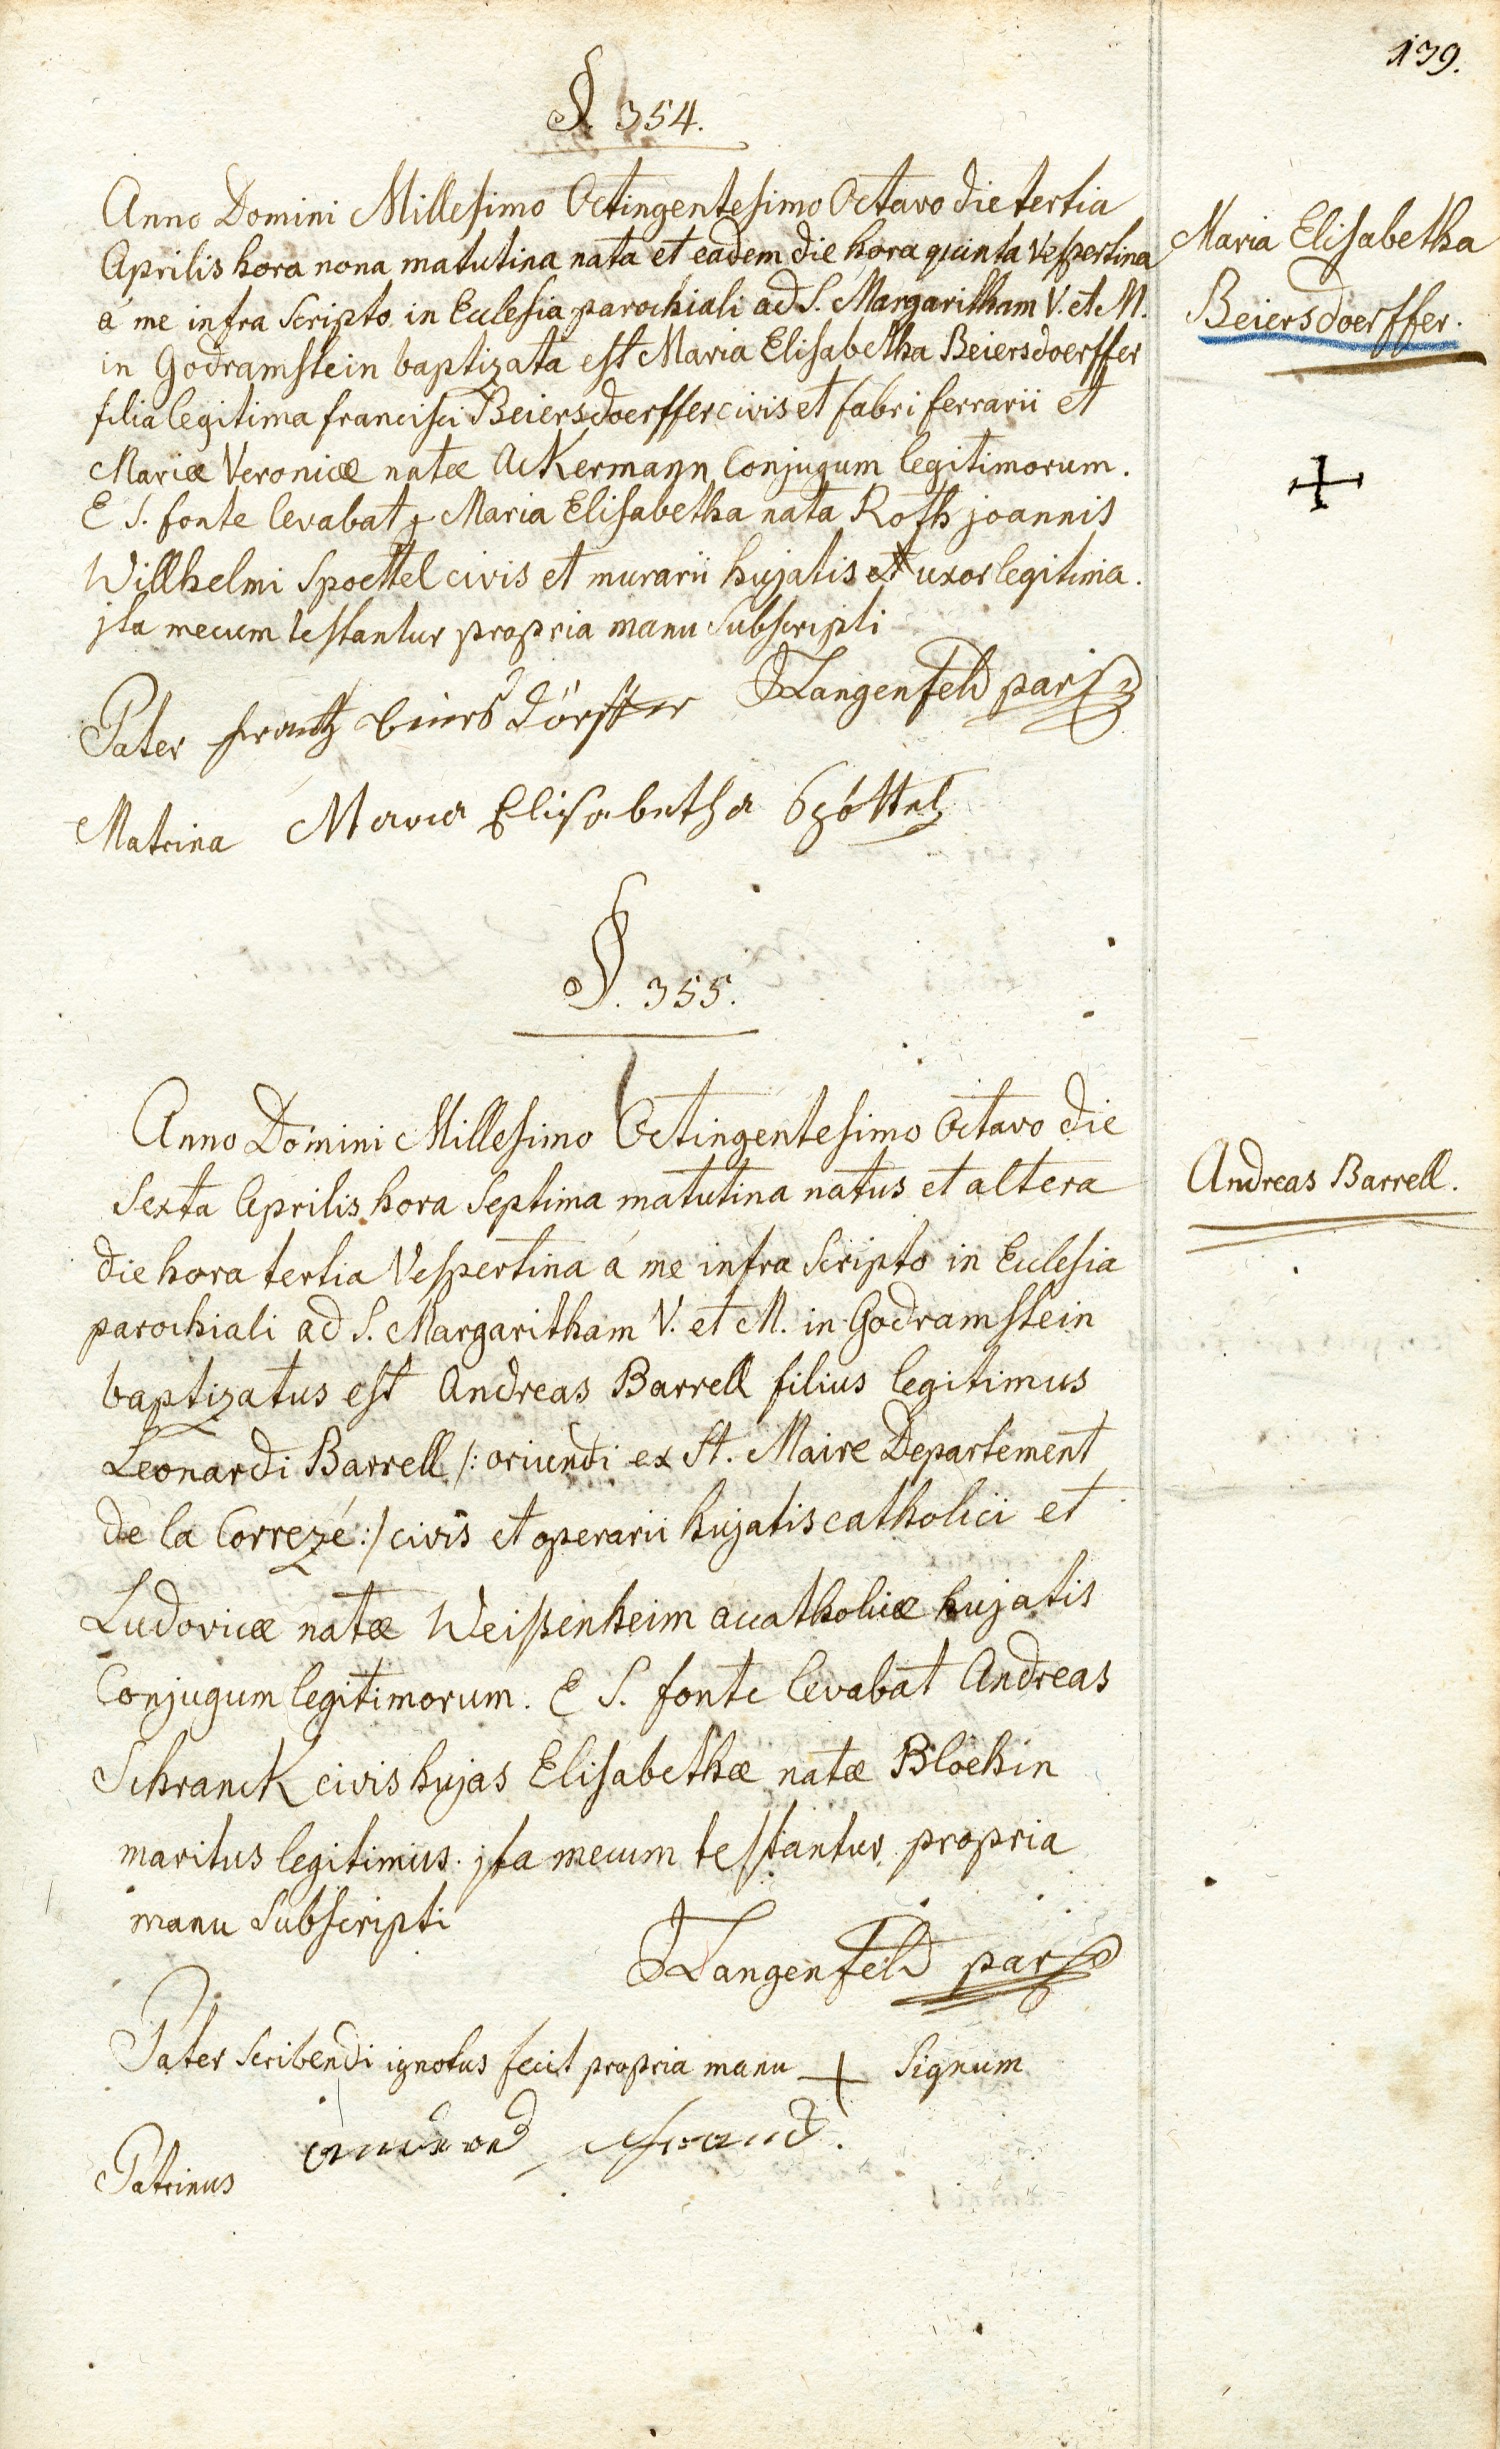 139.
§. 354.
Anno Domini Millesimo Octingentesimo Octavo die tertia
Aprilis hora nona matutina nata et eadem die hora quinta Vespertina
á me infra Scripto in Ecclesia parochiali ad S. Margaritham V. et M.
in Godramstein baptizata est Maria Elisabetha Beiersdoerffer
filia legitima francisci Beiersdoerffer civis et fabri ferrarii et
Mariæ Veronicæ natæ Ackermann Conjugum legitimorum.
E S. fonte levabat Maria Elisabetha nata Roth joannis
Willhelmi Spoettel civis et murarii hujatis uxor legitima.
jta mecum testantur propria manu Subscripti
JLangenfeld
Pater frantz beiersdörffer
Matrina Maria Elisabetha Spöttel
Maria Elisabetha
Beiersdoerffer.
§. 355.
Anno Domini Millesimo Octingentesimo Octavo die
Sexta Aprilis hora Septima matutina natus et altera
die hora tertia Vespertina á me infra Scripto in Ecclesia
parochiali ad S. Margaritham V. et M. in Godramstein
baptizatus est Andreas Barrell filius legitimus
Leonardi Barrell /: oriundi ex St. Maire Departement
de la Correzé :/ civis et operarii hujatis catholici et
Ludovicæ natæ Weißenheim acatholicæ hujatis
Conjugum legitimorum. E S. fonte levabat Andreas
Schranck civis hujas Elisabethæ natæ Bloehin
maritus legitimus. jta mecum testantur propria
manu Subscripti
JLangenfeld
Pater Scribendi ignotus fecit propria manu + Signum
Patrinus
Andreas Barrell.